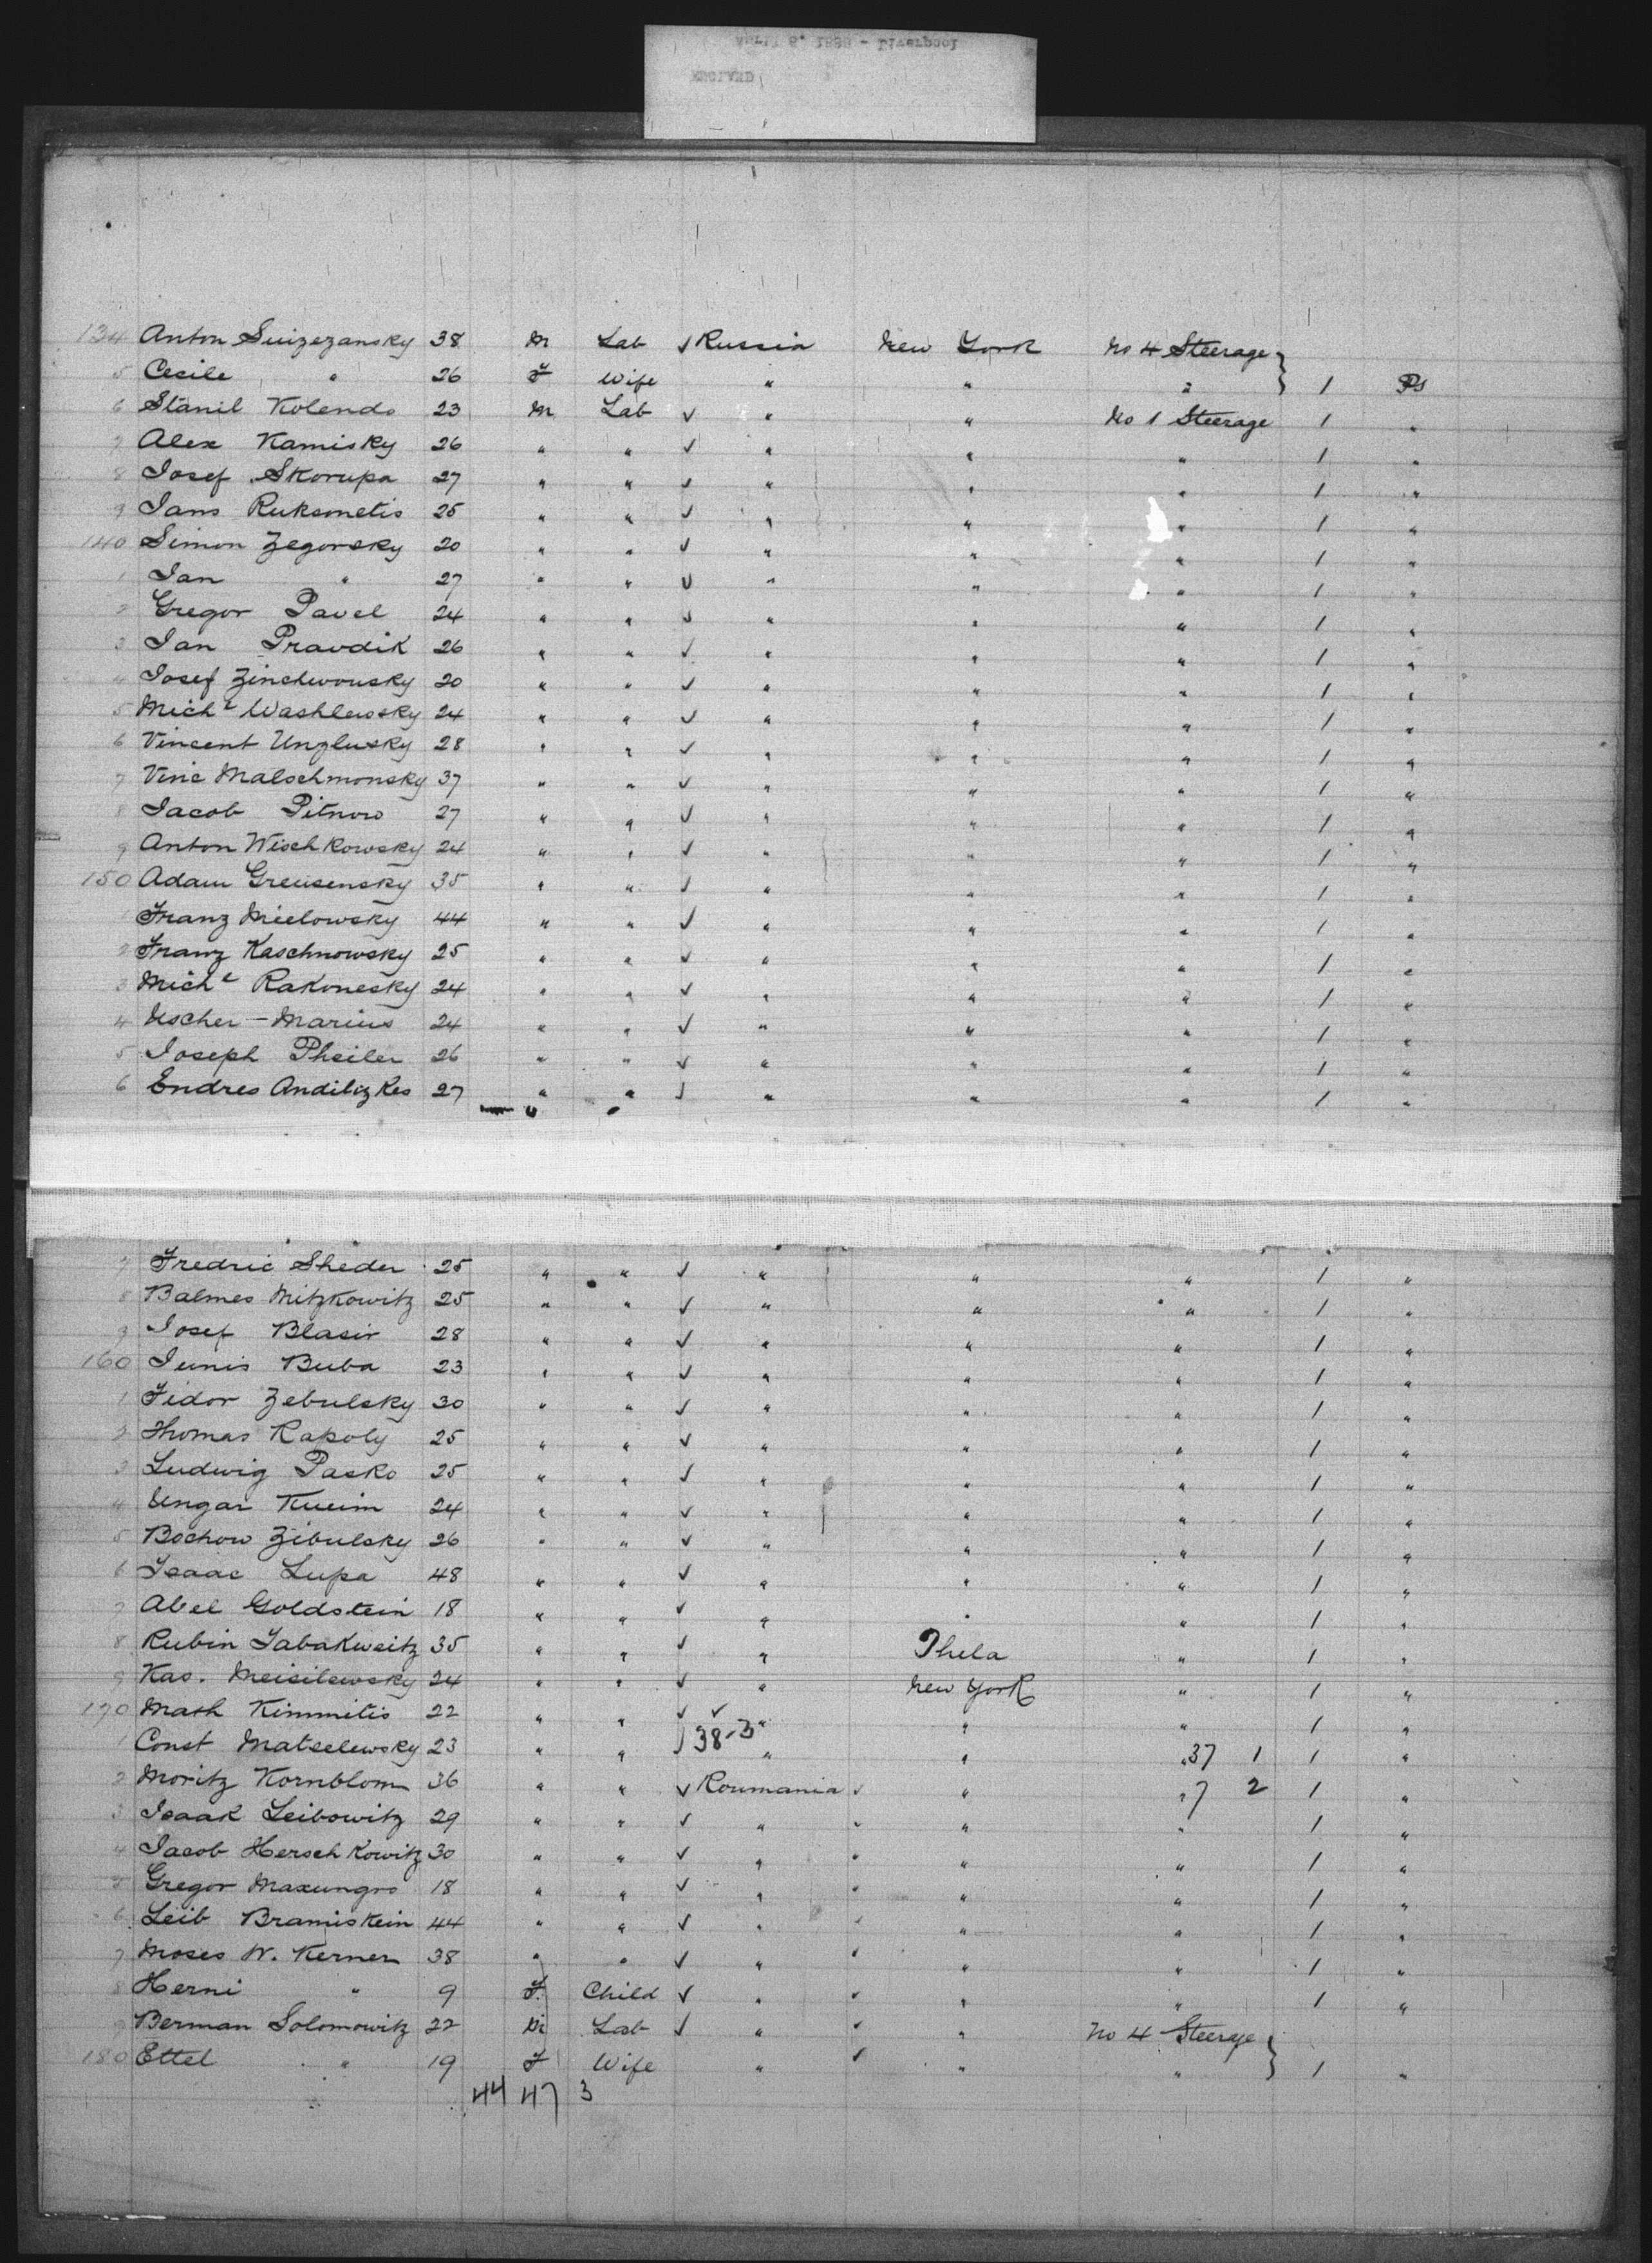 April 9. 1898 - Liverpool
134 Anton Suizezansky 38 M Lab ✓ Russia New York No 4 Steerage
5 Cecile " 26 F Wife " " " 1 Ps
6 Stanil Kolendo 23 M Lab ✓ " " No 1 Steerage 1 "
7 Alex Kamisky 26 " " ✓ " " " 1 "
8 Josef Skorupa 27 " " ✓ " " " 1 "
9 Jans Ruksmetis 25 " " ✓ " " " 1 "
140 Simon Zegorsky 20 " " ✓ " " " 1 "
1 Jan " 27 " " ✓ " " " 1 "
2 Gregor Pavel 24 " " ✓ " " " 1 "
3 Jan Pravdik 26 " " ✓ " " " 1 "
4 Josef Zinchwousky 20 " " ✓ " " " 1 "
5 Michl Washlewsky 24 " " ✓ " " " 1 "
6 Vincent Unglusky 28 " " ✓ " " " 1 "
7 Vinc Malschmonsky 37 " " ✓ " " " 1 "
8 Jacob Pitnow 27 " " ✓ " " " 1 "
9 Anton Wischkowsky 24 " " ✓ " " " 1 "
150 Adam Greusensky 35 " " ✓ " " " 1 "
1 Franz Mielowsky 44 " " ✓ " " " 1 "
2 Franz Kaschnowsky 25 " " ✓ " " " 1 "
3 Michl Rakonesky 24 " " ✓ " " " 1 "
4 Uscher-Marius 24 " " ✓ " " " 1 "
5 Joseph Pheiler 26 " " ✓ " " " 1 "
6 Endres Andilizkes 27 " " ✓ " " " 1 "
7 Fredric Sheder 25 " " ✓ " " " 1 "
8 Balmes Mitzkowitz 25 " " ✓ " " " 1 "
9 Josef Blasir 28 " " ✓ " " " 1 "
160 Junis Buba 23 " " ✓ " " " 1 "
1 Fidor Zebulsky 30 " " ✓ " " " 1 "
2 Thomas Rapoly 25 " " ✓ " " " 1 "
3 Ludwig Pasko 25 " " ✓ " " " 1 "
4 Ungar Kueim 24 " " ✓ " " " 1 "
5 Bochow Zibulsky 26 " " ✓ " " " 1 "
6 Isaac Lupa 48 " " ✓ " " " 1 "
7 Abel Goldstein 18 " " ✓ " " " 1 "
8 Rubin Tabakweitz 35 " " ✓ " Phela " 1 "
9 Kas. Meisilewsky 24 " " ✓ " New York " 1 "
170 Math Kimmitis 22 " " ✓ ✓ " " " 1 "
1 Const Matselewsky 23 " " 38-3 " " " 37 1 1 "
2 Moritz Kornblom 36 " " ✓ Roumania ✓ " " 7 2 1 "
3 Isaak Leibowitz 29 " " ✓ " " " 1 "
4 Jacob Herschkowitz 30 " " ✓ " " " 1 "
5 Gregor Maxungro 18 " " ✓ " " " 1 "
6 Leib Bramistein 44 " " ✓ " " " 1 "
7 Moses W. Kerner 38 " " ✓ " ✓ " " 1 "
8 Herni " 9 F. Child ✓ " ✓ " " 1 "
9 Berman Solomowitz 22 M Lab ✓ " ✓ " No 4 Steerage
180 Ettel " 19 F Wife " ✓ " " 1 "
44 47 3